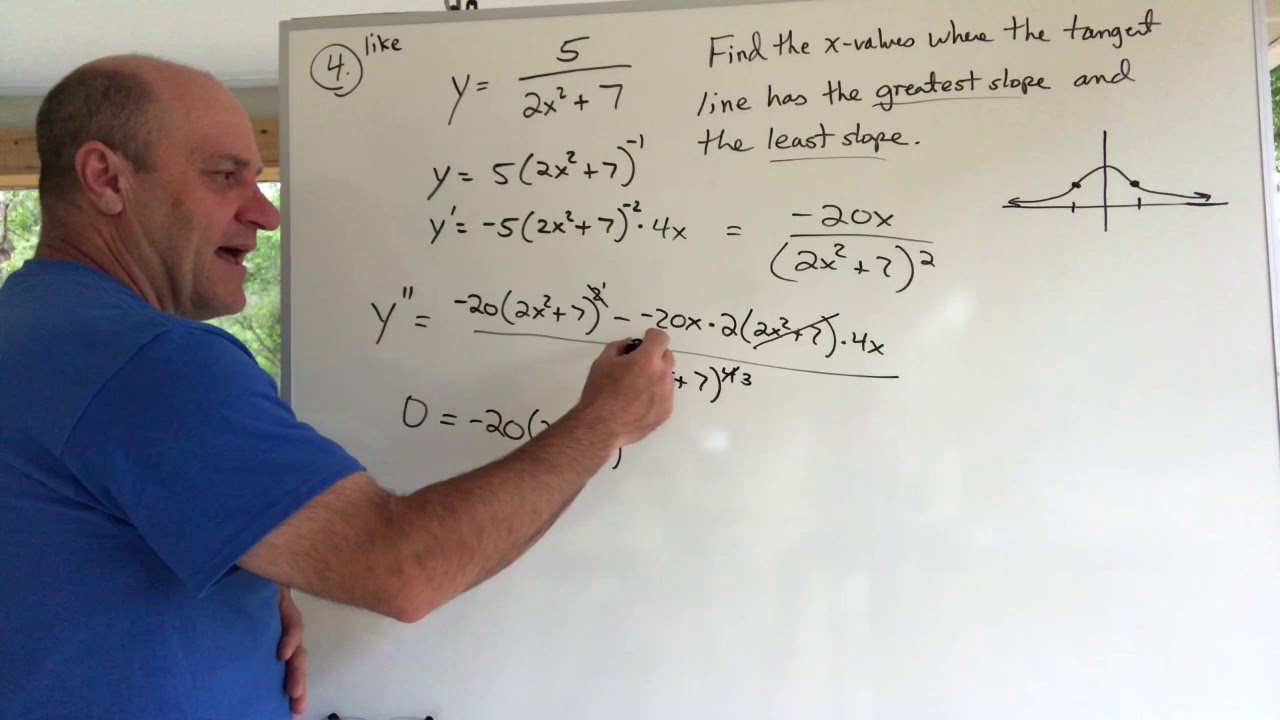 4. like
y = 5 / (2x² + 7)
Find the x-values where the tangent
line has the greatest slope and
the least slope.
y = 5(2x²+7)⁻¹
y' = -5(2x²+7)⁻² · 4x = -20x / (2x²+7)²
y'' = -20(2x²+7)^2̸ ¹ - -20x · 2(2x²+7) · 4x
+ 7)^4̸ 3
0 = -20(2